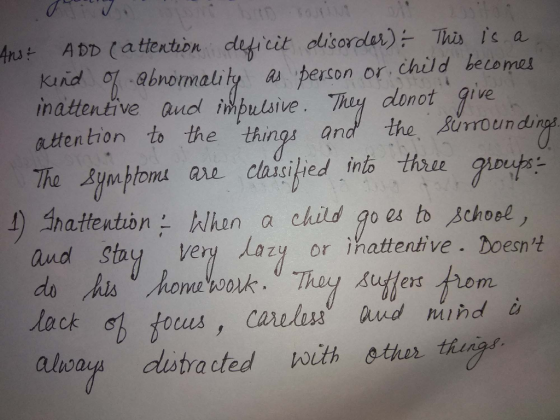 Ans:- ADD (attention deficit disorder):- This is a
kind of abnormality as person or child becomes
inattentive and impulsive. They donot give
attention to the things and the surroundings.
The symptoms are classified into three groups:-
1) Inattention:- When a child goes to school,
and stay very lazy or inattentive. Doesn't
do his homework. They suffers from
lack of focus, careless and mind is
always distracted with other things.